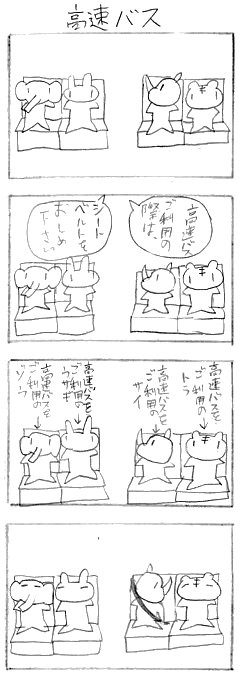 高速バス
高速バス
ご利用の
際は、
シート
ベルトを
おしめ
下さい
高速バスを
ご利用の
トラ
高速バスを
ご利用の
サイ
高速バスを
ご利用の
ウサギ
高速バスを
ご利用の
ゾウ